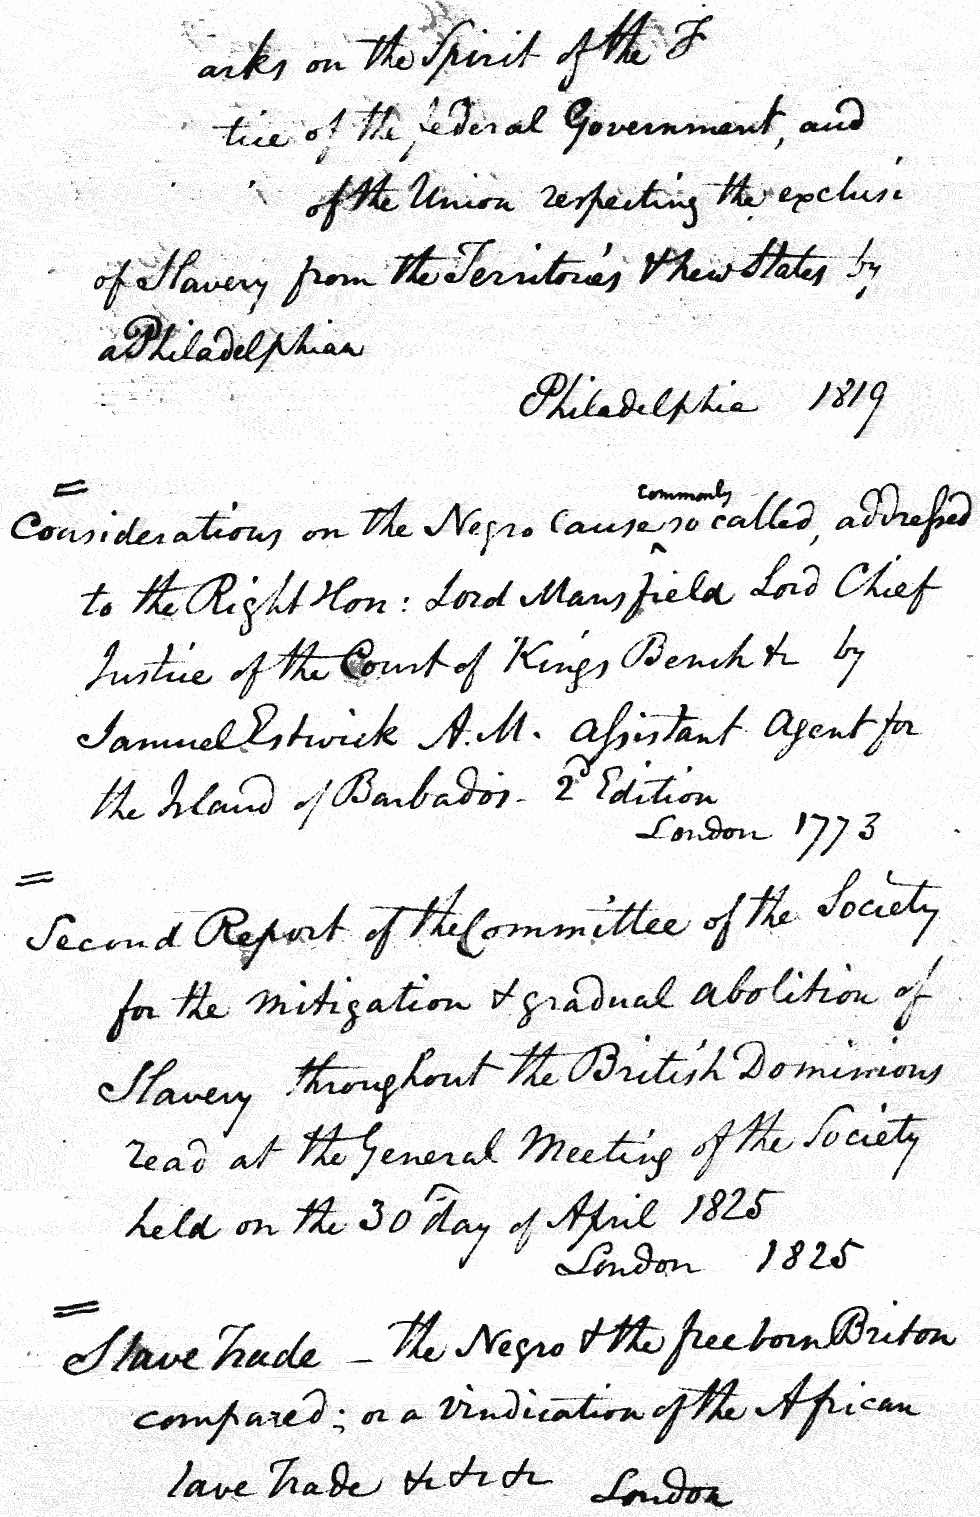 arks on the Spirit of the F
tice of the federal Government, and
of the Union respecting the exclusi
of Slavery from the Territories & new States by
a Philadelphian
Philadelphia 1819
=
Considerations on the Negro Cause commonly so called, addressed
to the Right Hon: Lord Mansfield Lord Chief
Justice of the Court of Kings Bench &c by
Samuel Estwick A.M. assistant Agent for
the Island of Barbados - 2d Edition
London 1773
=
Second Report of the Committee of the Society
for the mitigation & gradual abolition of
Slavery throughout the British Dominions
read at the General Meeting of the Society
held on the 30th day of April 1825
London 1825
=
Slave Trade – the Negro & the free born Briton
compared; or a vindication of the African
lave Trade &c &c &c London